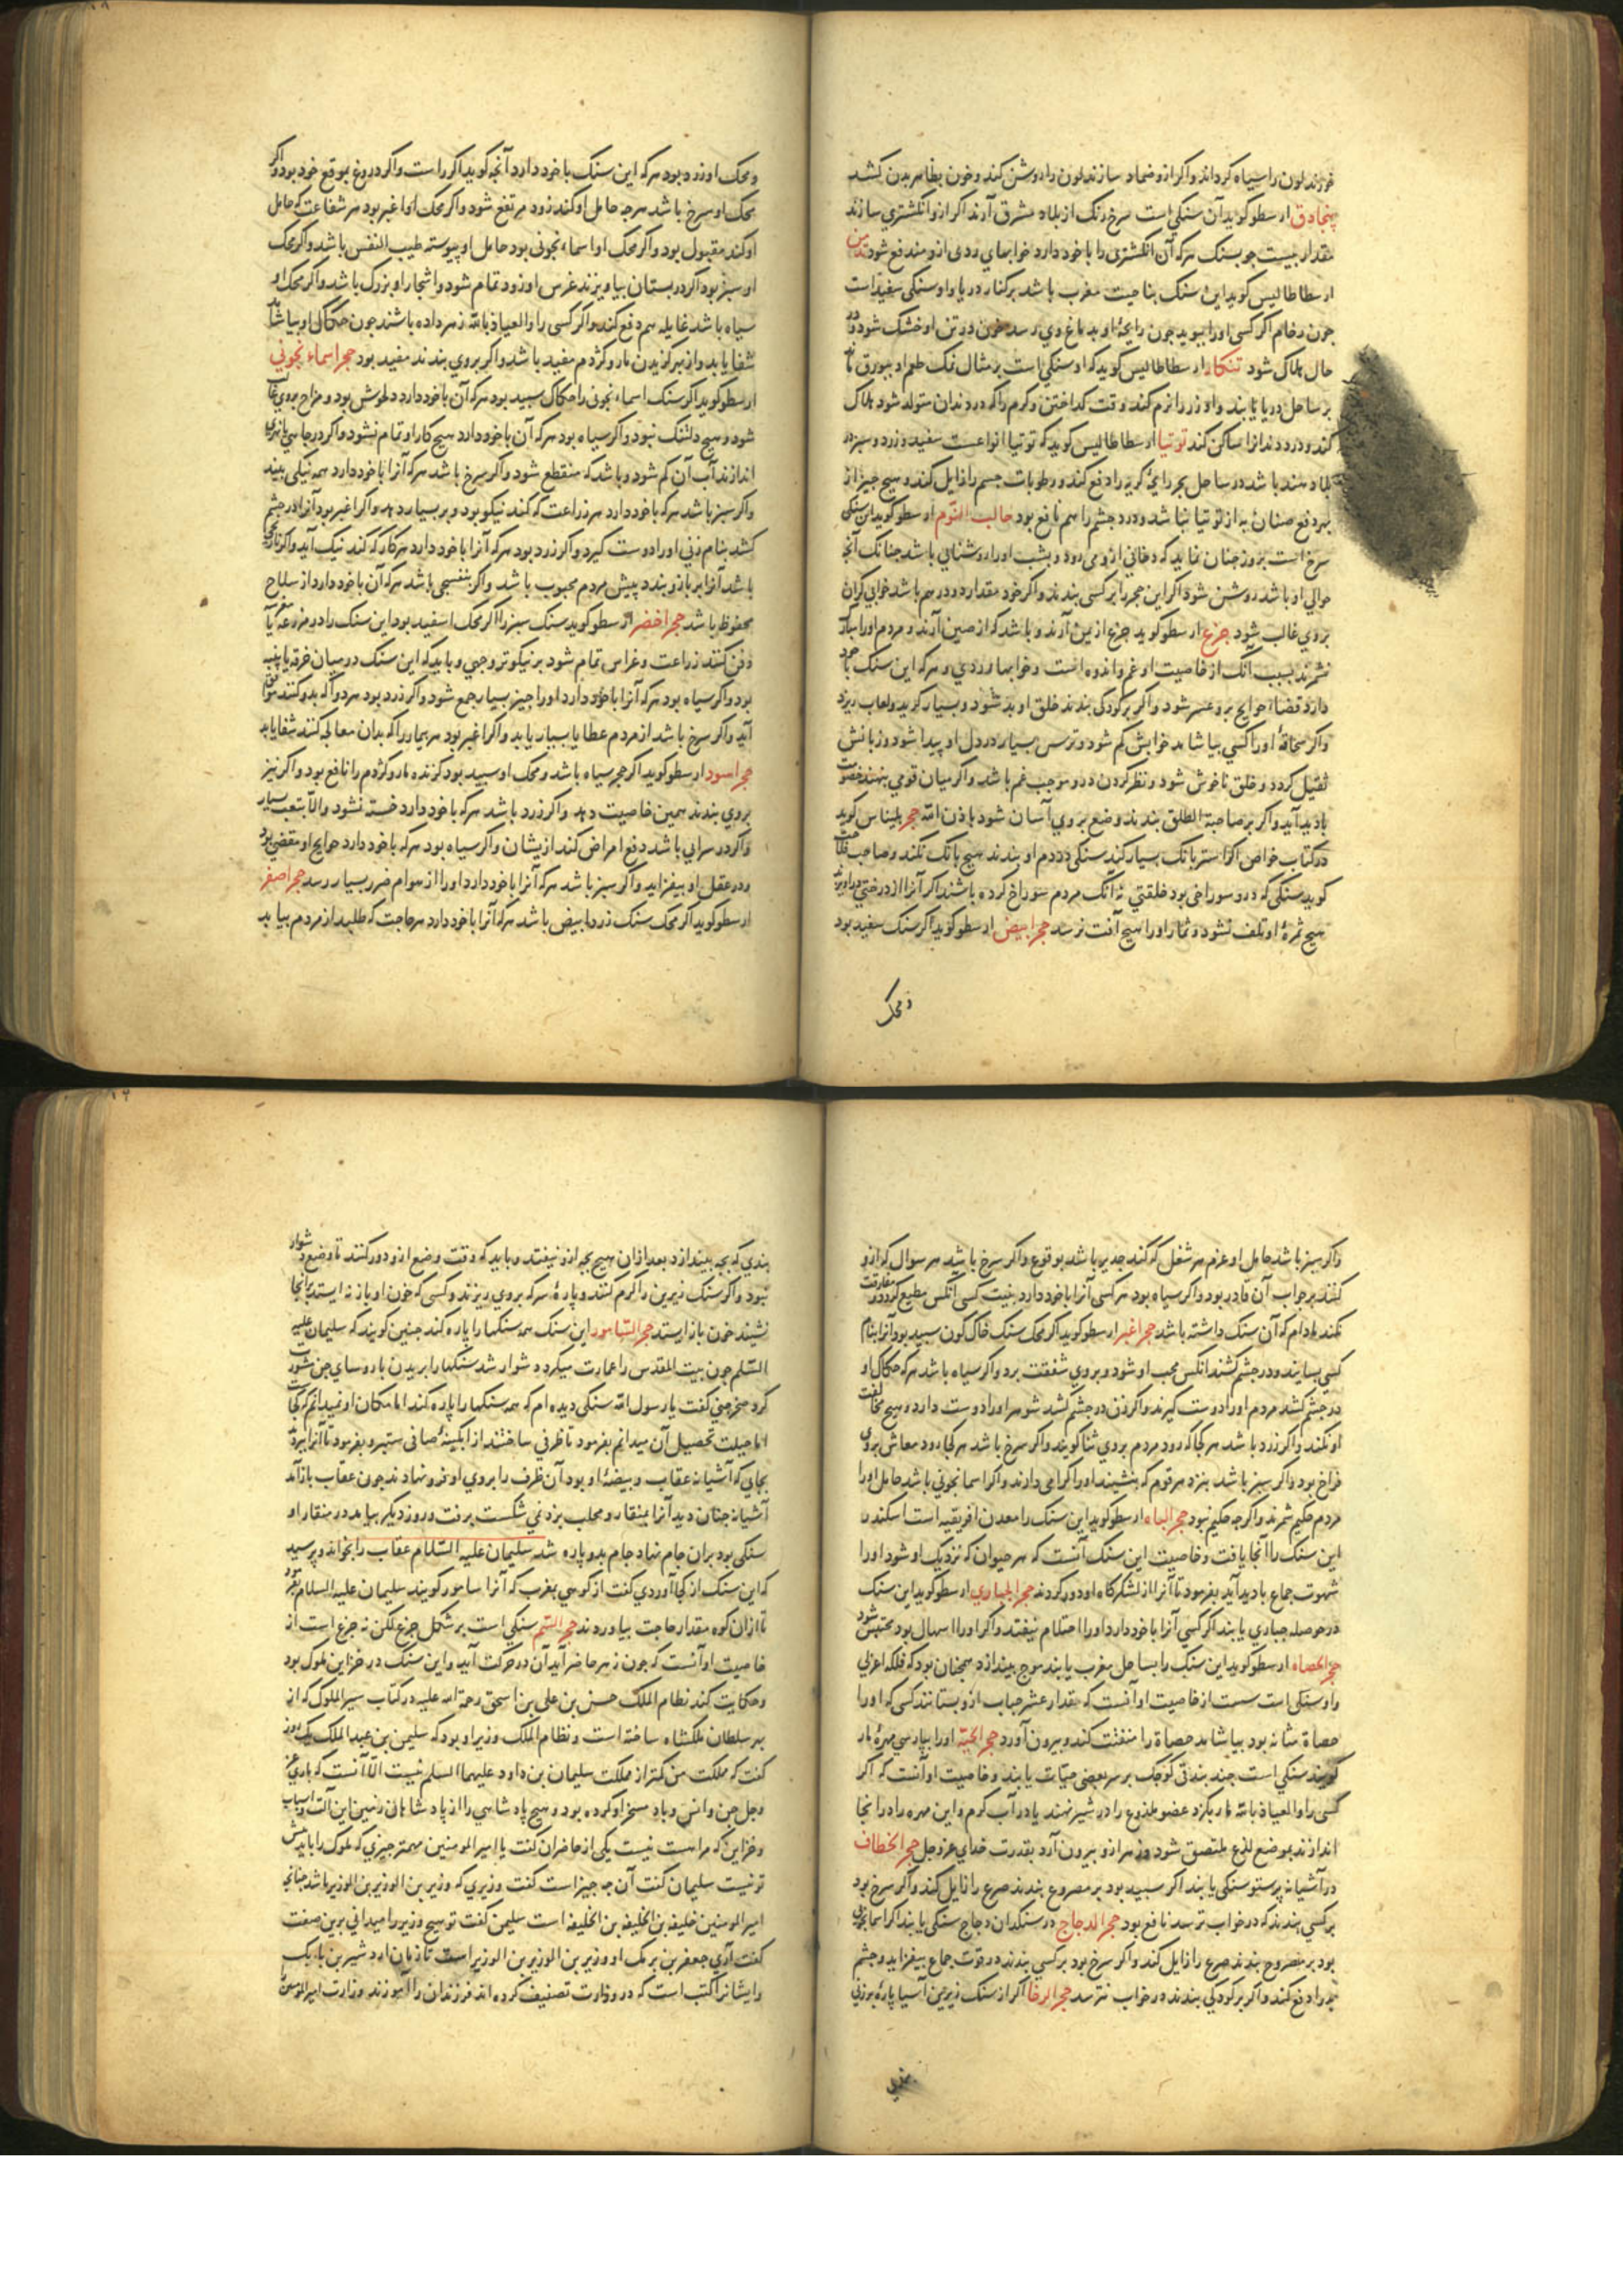 خورند لون را سیاه کرداند واکر ازو ضماد سازند لون را روشن کند و خون بظاهر بدن کشد
بنجادق ارسطو کوید آن سنکی است سرخ رنک از بلاد مشرق آرند اکر ازو انکشتری سازند
مقدار بیست جو بسنک هرکه آن انکشتری را با خود دارد خوابهای ردی ازو مندفع شود
ارسطاطالیس کوید این سنک بناحیت مغرب باشد برکنار دریا و او سنکی سفید است
جون رخام اکر کسی اورا ببوید جون رایحهٔ او بدماغ وی رسد خون در تن او خشک شود و در
حال هلاک شود تنکار ارسطاطالیس کوید که او سنکی است بر مثال نمک طعم او ببورق ماند
بر ساحل دریا یابند و او زر را نرم کند وقت کداختن و کرم را که در دندان متولد شود هلاک
کند و درد دندانرا ساکن کند توتیا ارسطاطالیس کوید که توتیا انواعست سفید و زرد و سبز در
بلاد هند باشد در ساحل بحر رایحهٔ کریه را دفع کند و رطوبات جسم را زایل کند و هیج جیز از
بهر دفع صنان به از توتیا نباشد و درد جشم را هم نافع بود جالب النوم ارسطو کوید این سنکی
سرخ است بروز جنان نماید که دخانی ازو می رود و بشب اورا روشنایی باشد جنانک آنجه
حوالی او باشد روشن شود اکر این حجر را بر کسی بندند واکر خود مقدار دو درهم باشد خوابی کران
بروی غالب شود جزع ارسطو کوید جزع از یمن آرند و باشد که از صین آرند و مردم اورا مبارک
نشمرند بسبب آنک از خاصیت او غم و اندوه است و خوابهاء ردی و هرکه این سنک با خود
دارد قضاء حوایج برو عسر شود واکر بر کودکی بندند خلق او بد شود و بسیار کرید و لعاب ریزد
واکر سحاقهٔ اورا کسی بیاشامد خوابش کم شود و ترس بسیار در دل او پیدا شود و زبانش
ثقیل کردد و خلق ناخوش شود و نظر کردن درو موجب غم باشد واکر میان قومی بنهند خصومت
بادید آید واکر بر صاحبة الطلق بندند وضع بروی آسان شود باذن الله حجر بلیناس کوید
در کتاب خواص اکر استر بانک بسیار کند سنکی در دم او بندند هیج بانک نکند و صاحب فلاحت
کوید سنکی که درو سوراخی بود خلقتی نه آنک مردم سوراخ کرده باشند اکر آنرا از درختی درآویزند
هیج ثمرهٔ او تلف نشود و ثمار اورا هیج آفت نرسد حجر ابیض ارسطو کوید اکر سنک سفید بود
و محک
و محک او زرد بود هرکه این سنک با خود دارد آنجه کوید اکر راست واکر دروغ بموقع خود بود واکر
محک او سرخ باشد هرجه حامل او کند زود مرتفع شود واکر محک او اغبر بود هر شفاعت که حامل
او کند مقبول بود واکر محک او اسماءنجونی بود حامل او پیوسته طیب النفس باشد واکر محک
او سبز بود اکر در بستان بیاویزند غرس او زود تمام شود و اشجار او بزرک باشد واکر محک او
سیاه باشد غایلهٔ سم دفع کند واکر کسی را والعیاذ بالله زهر داده باشند جون حکاک او بیاشامد
شفا یابد و از بهر کزیدن مار و کژدم مفید باشد واکر بروی بندند مفید بود حجر اسماءنجونی
ارسطو کوید اکر سنک اسماءنجونی را حکاک سپید بود هرکه آن با خود دارد دلخوش بود و مزاح بروی غالب
شود و هیج دلتنک نبود واکر سیاه بود هرکه آن با خود دارد هیج کار او تمام نشود واکر در جاهی یا نهری
اندازند آب آن کم شود و باشد که منقطع شود واکر سرخ باشد هرکه آنرا با خود دارد همه نیکی بیند
واکر سبز باشد هرکه با خود دارد هر زراعت که کند نیکو بود و بر بسیار دهد واکر اغبر بود آنرا در جشم
کشد بنام زنی اورا دوست کیرد واکر زرد بود هرکه آنرا با خود دارد هر کار که کند نیک آید واکر نارنجی
باشد آنرا بر بازو بندد پیش مردم محبوب باشد واکر بنفسجی باشد هرکه آن با خود دارد از سلاح
محفوظ باشد حجر اخضر ارسطو کوید سنک سبز را اکر محک اسفید بود این سنک را در مزرعه یا
دفن کنند زراعت و غراس تمام شود بر نیکوتر وجهی و باید که این سنک در میان خرقه یا پنبه
بود واکر سیاه بود هرکه آنرا با خود دارد اورا جیز بسیار جمع شود واکر زرد بود هر دوا که بدو کنند موافق
آید واکر سرخ باشد از مردم عطایا بسیار یابد واکر اغبر بود هر بیمار را که بدان معالجه کنند شفا یابد
حجر اسود ارسطو کوید اکر حجر سیاه باشد و محک او سپید بود کزنده مار و کژدم را نافع بود واکر نیز
بروی بندند همین خاصیت دهد واکر زرد باشد هرکه با خود دارد خسته نشود والا بتعب بسیار
واکر در سرایی باشد دفع امراض کند ازیشان واکر سیاه بود هرکه با خود دارد حوایج او مقضی بود
و در عقل او بیفزاید واکر سبز باشد هرکه آنرا با خود دارد اورا از هوام ضرر بسیار رسد حجر اصفر
ارسطو کوید اکر محک سنک زرد ابیض باشد هرکه آنرا با خود دارد هر حاجت که طلبد از مردم بیابد
واکر سبز باشد حامل او عزم هر شغل که کند جدیر باشد بوقوع واکر سرخ باشد هر سوال که ازو
کنند بر جواب آن قادر بود واکر سیاه بود هر کسی آنرا با خود دارد بنیت کسی آنکس مطیع کردد و مفارقت
نکند مادام که آن سنک داشته باشد حجر اغبر ارسطو کوید اکر محک سنک خاک کون سپید بود و آنرا بنام
کسی بسایند و در جشم کشند آنکس محب او شود و بروی شفقت برد واکر سیاه باشد هرکه حکاک او
در جشم کشد مردم اورا دوست کیرند واکر زن در جشم کشد شوهر اورا دوست دارد و هیج مخالفت
او نکند واکر زرد باشد هرکجا که رود مردم بروی ثنا کویند واکر سرخ باشد هرکجا رود معاش بروی
فراخ بود واکر سبز باشد بنزد هر قوم که بنشیند اورا کرامی دارند واکر اسمانجونی باشد حامل اورا
مردم حکیم شمرند واکرجه حکیم نبود حجر الباه ارسطو کوید این سنک را معدن افریقیه است اسکندر
این سنک را آنجا یافت و خاصیت این سنک آنست که هر حیوان که نزدیک او شود اورا
شهوت جماع بادید آید بفرمود تا آنرا از لشکرکاه او دور کردند حجر الحباری ارسطو کوید این سنک
در حوصلهٔ حباری یابند اکر کسی آنرا با خود دارد اورا احتلام نیفتد واکر اورا اسهال بود محتبس شود
حجر الحصاه ارسطو کوید این سنک را بساحل مغرب یابند موج بیندازد همجنان بود که فلکهٔ اعزلی
و او سنکی است سست از خاصیت او آنست که مقدار عشر حبات ازو بستانند کسی که اورا
حصاة مثانه بود بیاشامد حصاة را متفتت کند و بیرون آورد حجر الحیة اورا بپارسی مهرهٔ مار
کویند سنکی است جند بندقی کوجک بر سر بعضی حیات یابند و خاصیت او آنست که اکر
کسی را والعیاذ بالله مار بکزد عضو ملدوغ را در شیر نهند یا در آب کرم و این مهره را در آنجا
اندازند بموضع لدغ ملتصق شود و زهر ازو بیرون آرد بقدرت خدای عز و جل حجر الخطاف
در آشیانه پرستو سنکی یابند اکر سپید بود بر مصروع بندند صرع را زایل کند واکر سرخ بود
بر کسی بندند که در خواب ترسد نافع بود حجر الدجاج در سنکدان دجاج سنکی یابند اکر اسمانجونی
بود بر مصروع بندند صرع را زایل کند واکر سرخ بود بر کسی بندند در قوت جماع بیفزاید و جشم
بد را دفع کند واکر بر کودکی بندند در خواب نترسد حجر الرحا اکر از سنک زیرین آسیا پارهٔ برزنی
بندی که بجه بیندازد بعد ازان هیج بجه ازو نیفتد و باید که وقت وضع ازو دور کنند تا وضع دشوار
نبود واکر سنک زیرین را کرم کنند و پارهٔ سرکه بروی ریزند و کسی که خون او باز نه ایستد بر آنجا
نشیند خون باز ایستد حجر السامور این سنک همه سنکها را پاره کند جنین کویند که سلیمان علیه
السلم جون بیت المقدس را عمارت میکرد دشوار شد سنکها را بریدن با روسای جن مشورت
کرد صخر جنی کفت یا رسول الله سنکی دیده ام که همه سنکها را پاره کند اما مکان او نمیدانم که کجاست
اما حیلت تحصیل آن میدانم بفرمود تا ظرفی ساختند از آبکینهٔ صافی ستبر و بفرمود تا آنرا ببرند
بجایی که آشیانه عقاب و بیضهٔ او بود آن ظرف را بروی او فرو نهادند جون عقاب باز آمد
آشیانه جنان دید آنرا بمنقار و مخلب بزد نمی شکست برفت و روز دیکر بیامد در منقار او
سنکی بود بران جام نهاد جام بدو پاره شد سلیمان علیه السلام عقاب را بخواند و پرسید
که این سنک از کجا آوردی کفت از کوهی بمغرب که آنرا سامور کویند سلیمان علیه السلام بفرمود
تا ازان کوه مقدار حاجت بیاوردند حجر السم سنکی است بر شکل جزع لکن نه جزع است از
خاصیت او آنست که جون زهر حاضر آید آن در حرکت آید و این سنک در خزاین ملوک بود
و حکایت کند نظام الملک حسن بن علی بن اسحق رحمة الله علیه در کتاب سیر الملوک که از
بهر سلطان ملکشاه ساخته است و نظام الملک وزیر او بود که سلیمن بن عبد الملک یک روز
کفت که مملکت من کمتر از مملکت سلیمان بن داود علیهما السلم نیست الا آنست که باری عز
وجل جن و انس و باد مسخر او کرده بود و هیج پادشاهی را از پادشاهان زمین این آلت و اسباب
و خزاین که مراست نیست یکی از حاضران کفت یا امیر المومنین مهمتر جیزی که ملوک را باید پیش
تو نیست سلیمان کفت آن جه جیز است کفت وزیری که وزیر بن الوزیر بن الوزیر باشد جنانجه
امیر المومنین خلیفه بن الخلیفه بن الخلیفه است سلیمن کفت تو هیج وزیر را میدانی برین صفت
کفت آری جعفر بن برمک او وزیر بن الوزیر بن الوزیر است تا زمان اردشیر بن بابک
و ایشانرا کتب است که در وزارت تصنیف کرده اند فرزندان را آموزند وزارت امیر المومنین